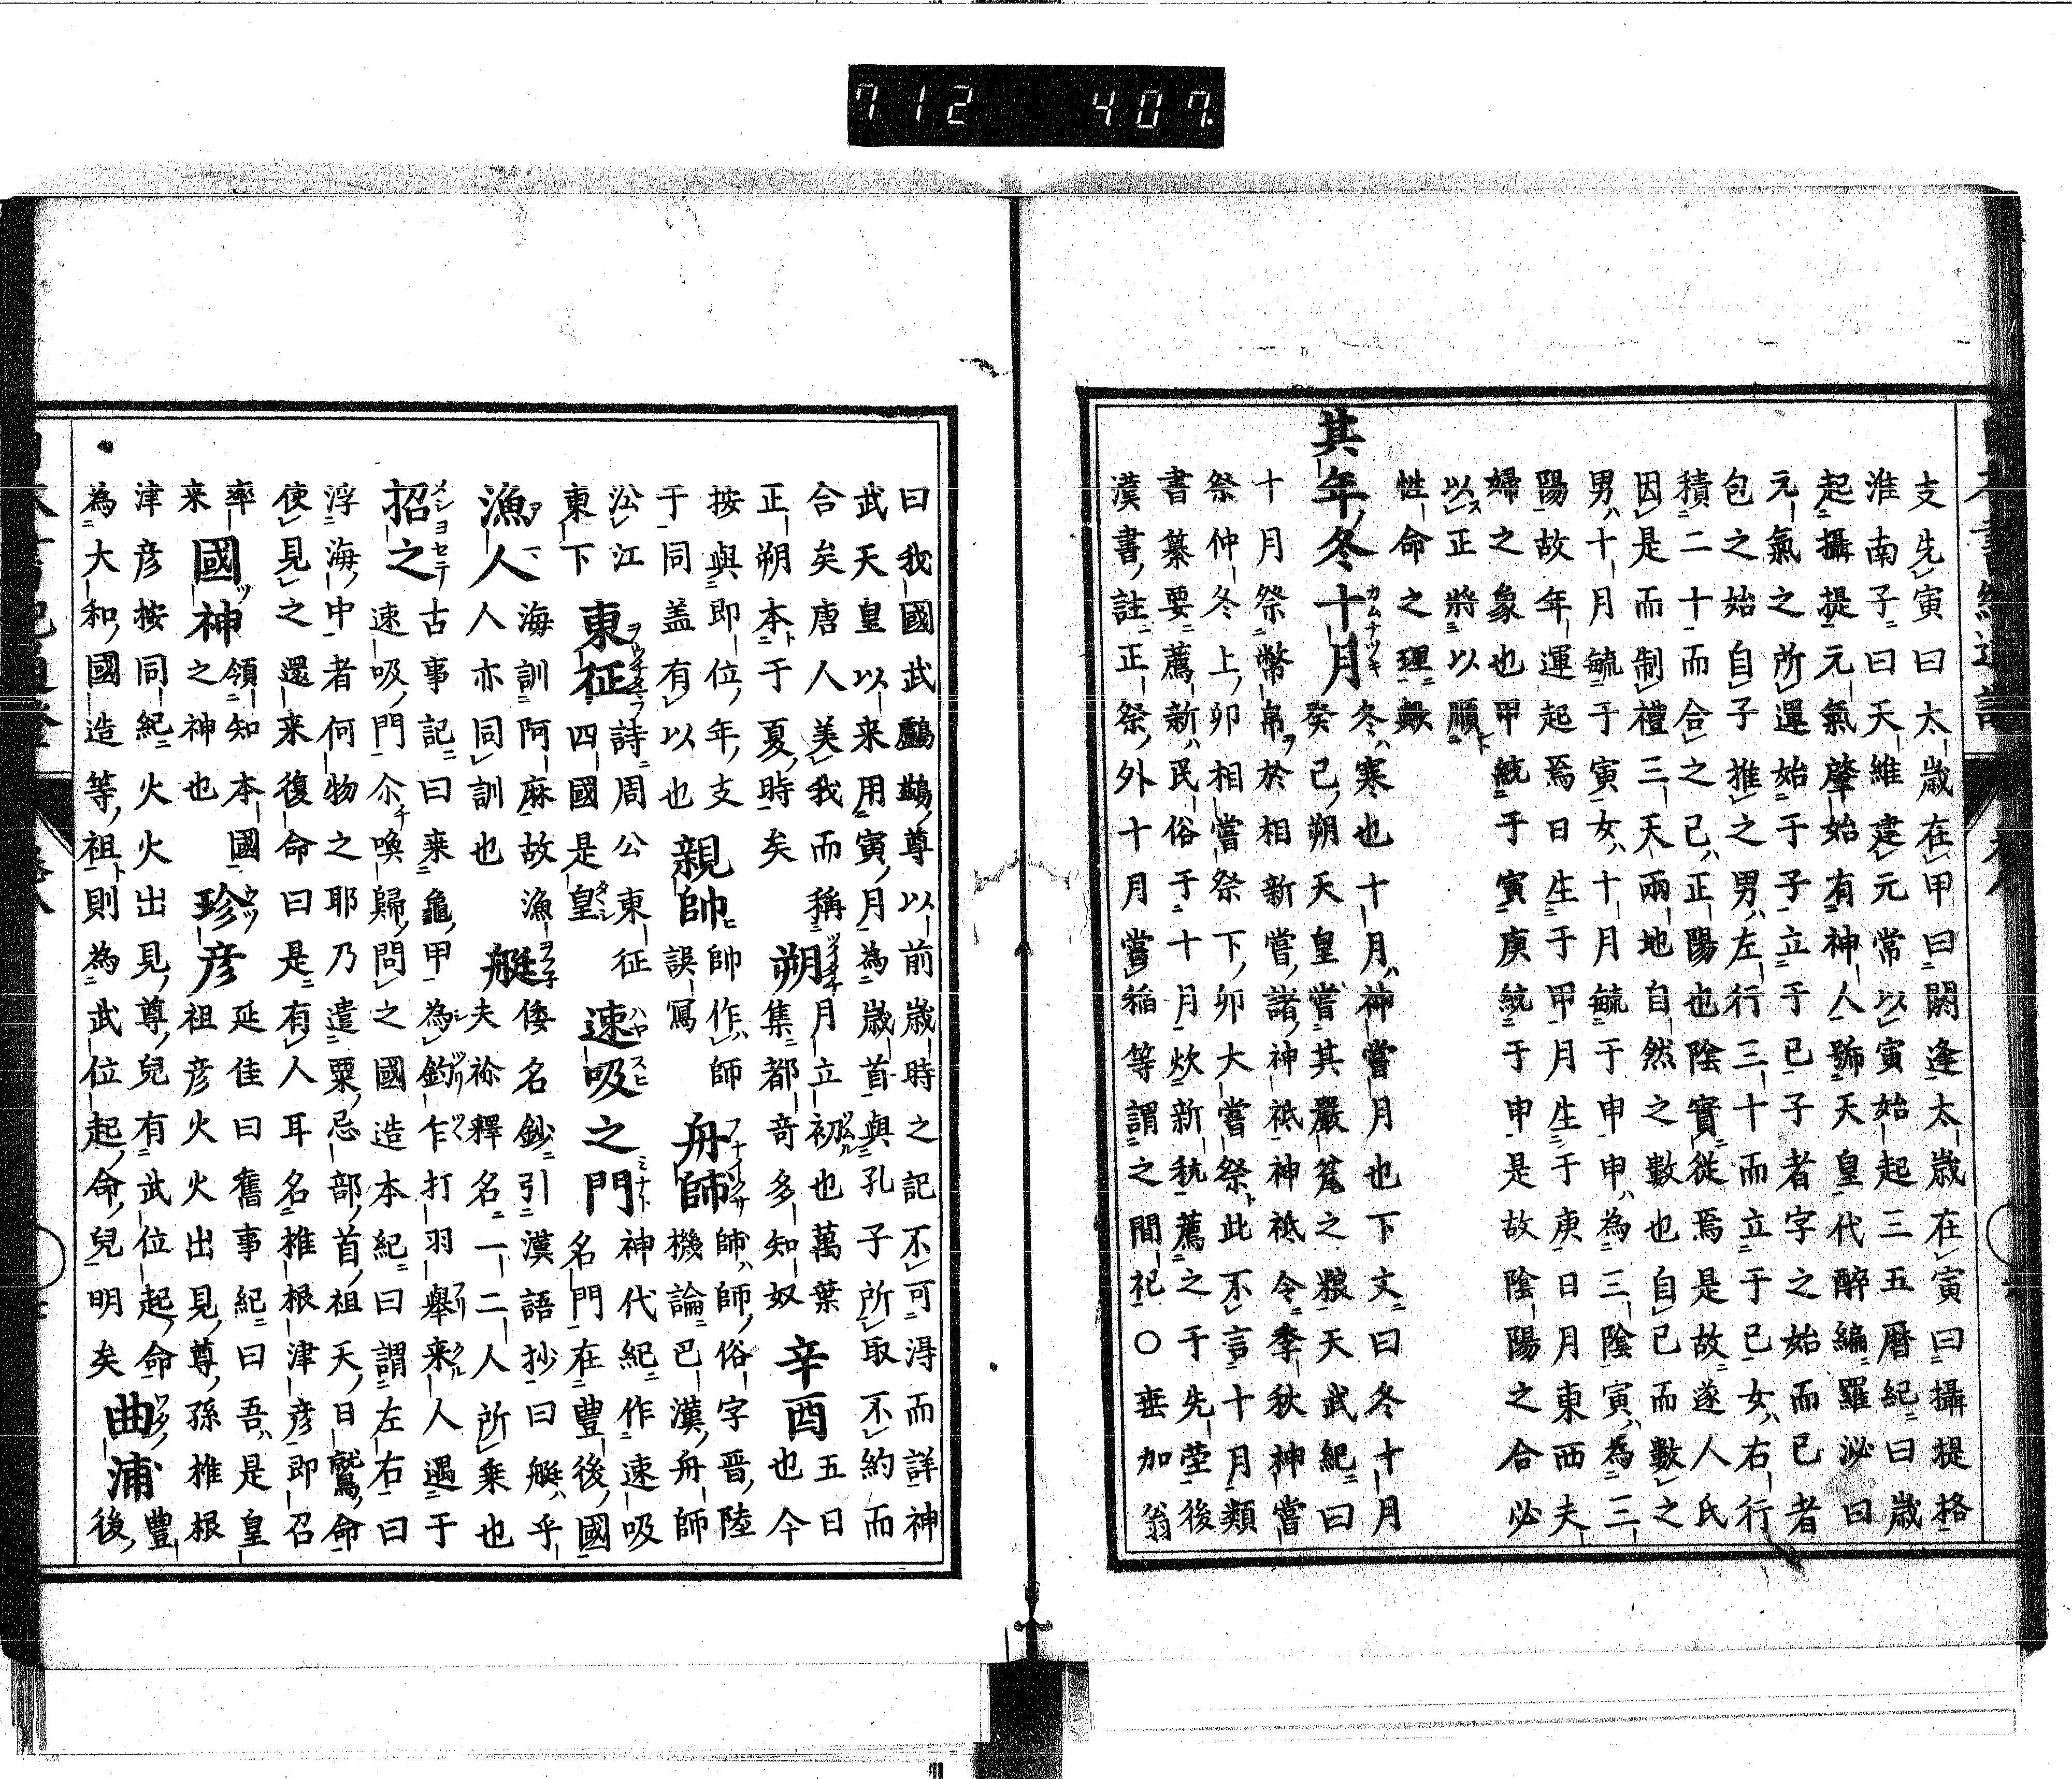 712 407
支先寅曰太歳在甲曰閼逢太歳在寅曰攝提格
淮南子曰天維建元常以寅始起三五暦紀曰歳
起攝提元氣肇始有神人號天皇代醉編羅泌曰
元氣之所運始于子立于已子者字之始而已者
包之始自子推之男左行三十而立于已女右行
積二十而合之已正陽也陰實從焉是故遂人氏
因是而制禮三天兩地自然之數也自已而數之
男十月毓于寅女十月毓于申申為三陰寅為三
陽故年運起焉日生于甲月生于庚日月東西夫
婦之象也甲統于寅庚統于申是故陰陽之合必
以正將以順
性命之理歟
其年冬十月冬寒也十月神嘗月也下文曰冬十月
癸已朔天皇嘗其嚴瓮之粮天武紀曰
十月祭幣帛於相新嘗諸神祇神祇令季秋神嘗
祭仲冬上卯相嘗祭下卯大嘗祭此不言十月類
書纂要薦新民俗于十月炊新秔薦之于先塋後
漢書註正祭外十月嘗稲等謂之間祀〇垂加翁
曰我國武鸕鷀尊以前歳時之記不可淂而詳神
武天皇以来用寅月為歳首與孔子所取不約而
合矣唐人美我而稱
正朔本于夏時矣
朔月立初也萬葉
集都奇多知奴
辛酉五日
也今
按與即位年支
于同盖有以也
親帥帥作師
誤寫
舟師師師俗字晋陸
機論巴漢舟師
東征詩周公東征
四國是皇
速吸之門神代紀作速吸
名門在豊後國
漁人海訓阿麻故漁
人亦同訓也
艇倭名鈔引漢語抄曰艇乎
夫祢釋名一二人所乗也
招之古事記曰乗龜甲為釣乍打羽舉来人遇于
速吸門尒喚歸問之國造本紀曰謂左右曰
浮海中者何物之耶乃遣粟忌部首祖天日鷲命
使見之還来復命曰是有人耳名椎根津彦即召
率領知本國延佳曰舊事紀曰吾是皇
来國神之神也
珍彦祖彦火火出見尊孫椎根
津彦按同紀火火出見尊兒有武位起命豊
為大和國造等祖則為武位起命兒明矣曲浦後